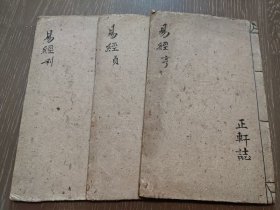 易經亨
正軒誌
易經貞
易經利